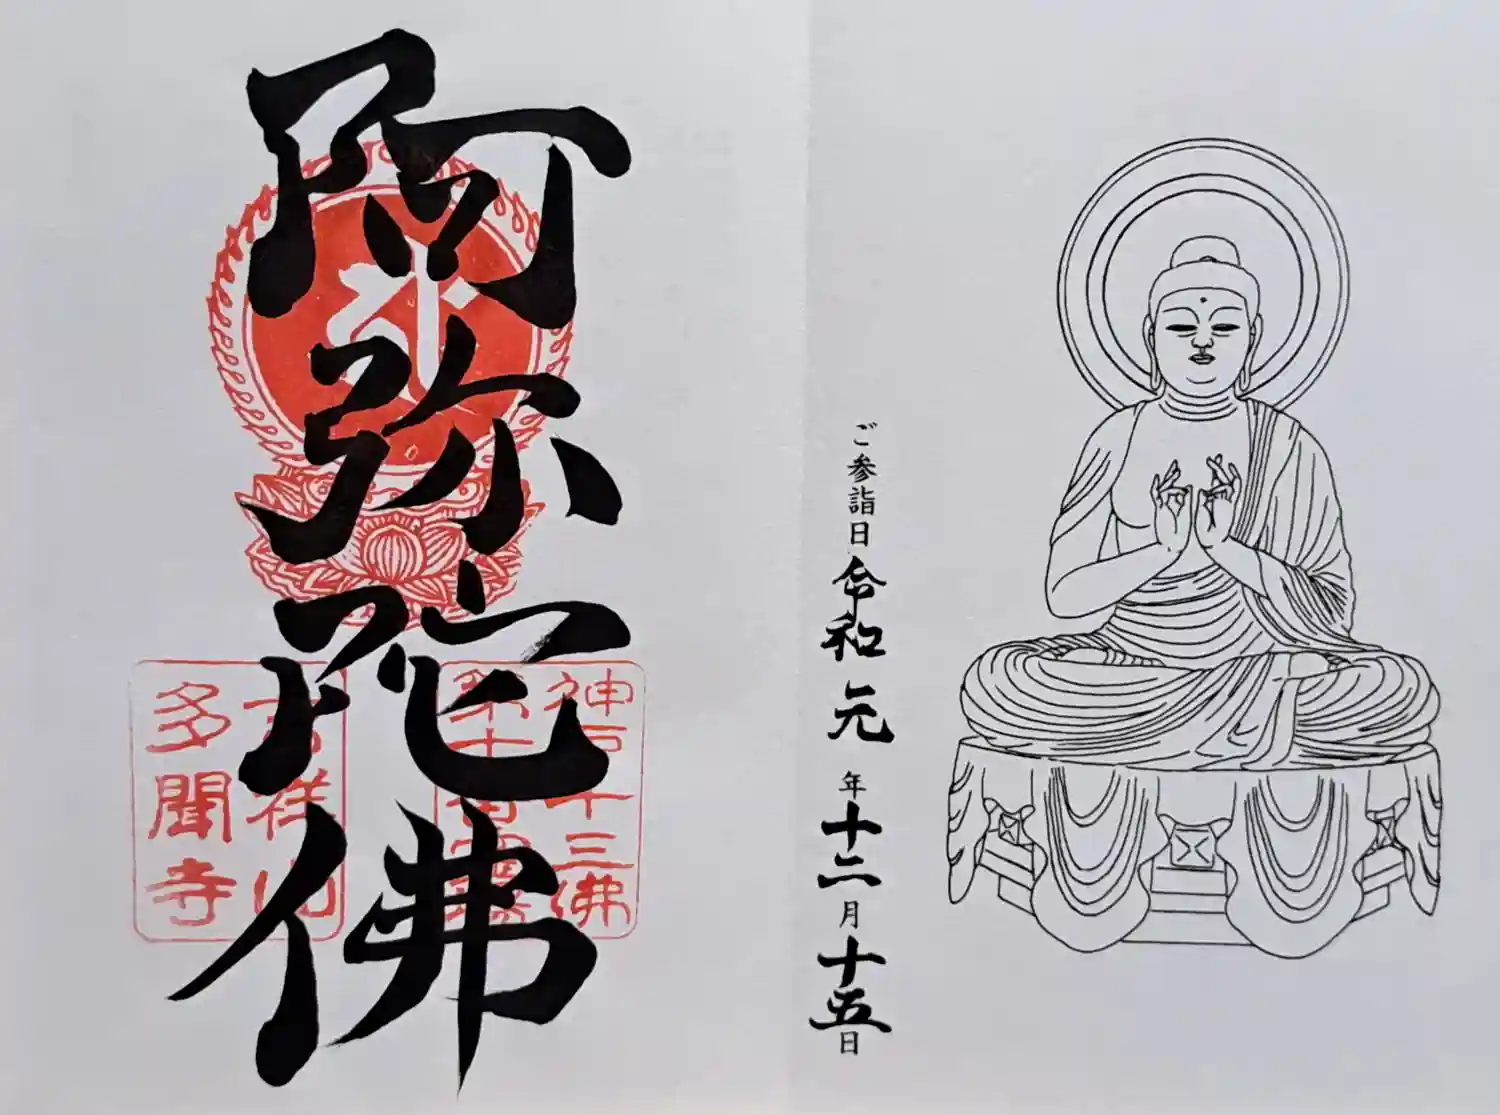 ご参詣日令和元年十二月十五日
阿弥陀佛
神戸十三佛
第十番霊場
吉祥山
多聞寺